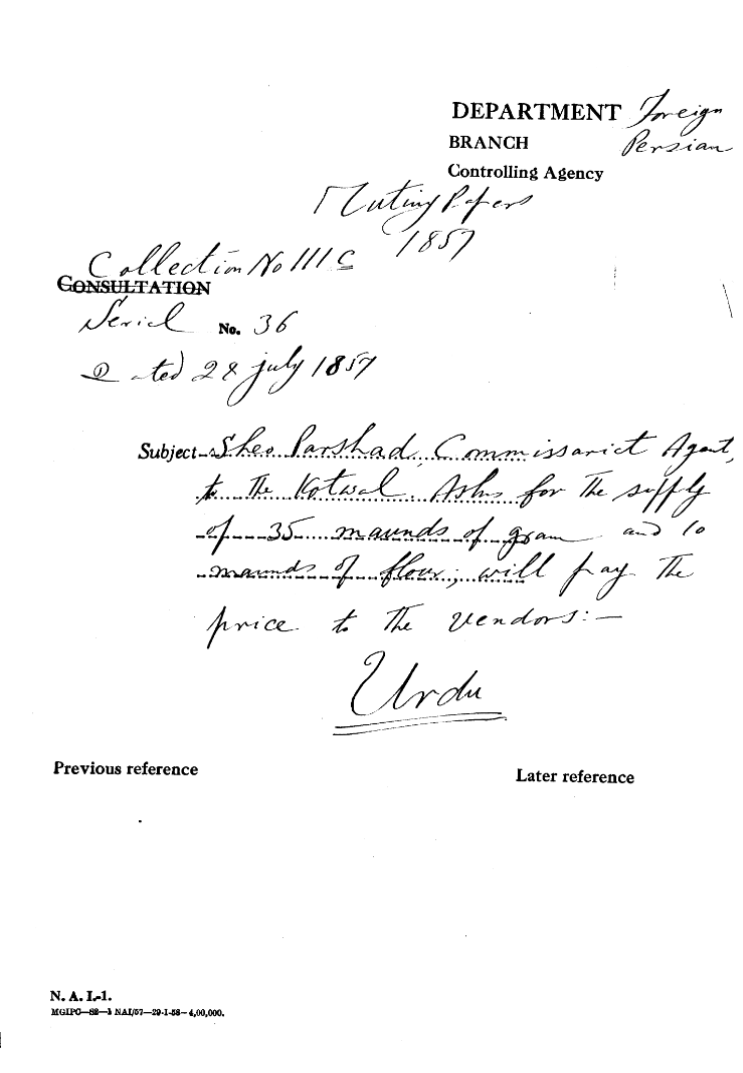 DEPARTMENT Foreign
BRANCH Persian
Controlling Agency
Mutiny Papers
1857
Collection No 111 C
CONSULTATION
Serial No. 36
Dated 28 July 1857
Subject- Sheo Parshad, Commissariat Agent,
to the Kotwal. Asks for the supply
of 35 maunds of gram and 10
maunds of flour; will pay the
price to the vendors:—
Urdu
Previous reference
Later reference
N. A. I.-1.
MGIPC—S2—1 NAI/57—29-1-58—4,00,000.